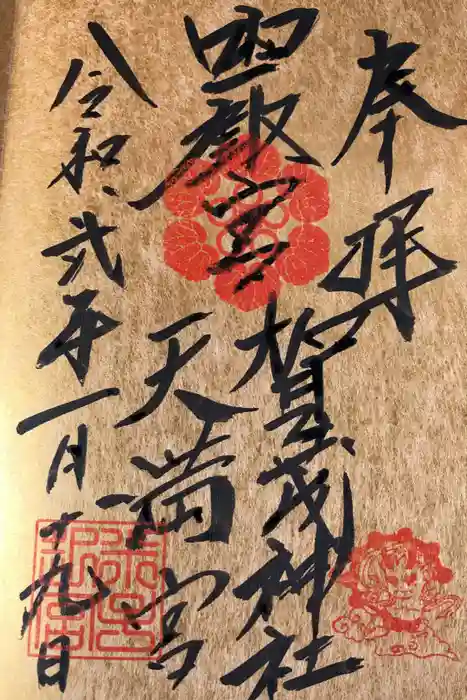 奉拝
宮
賀茂神社
天満宮
令和弐年一月十九日